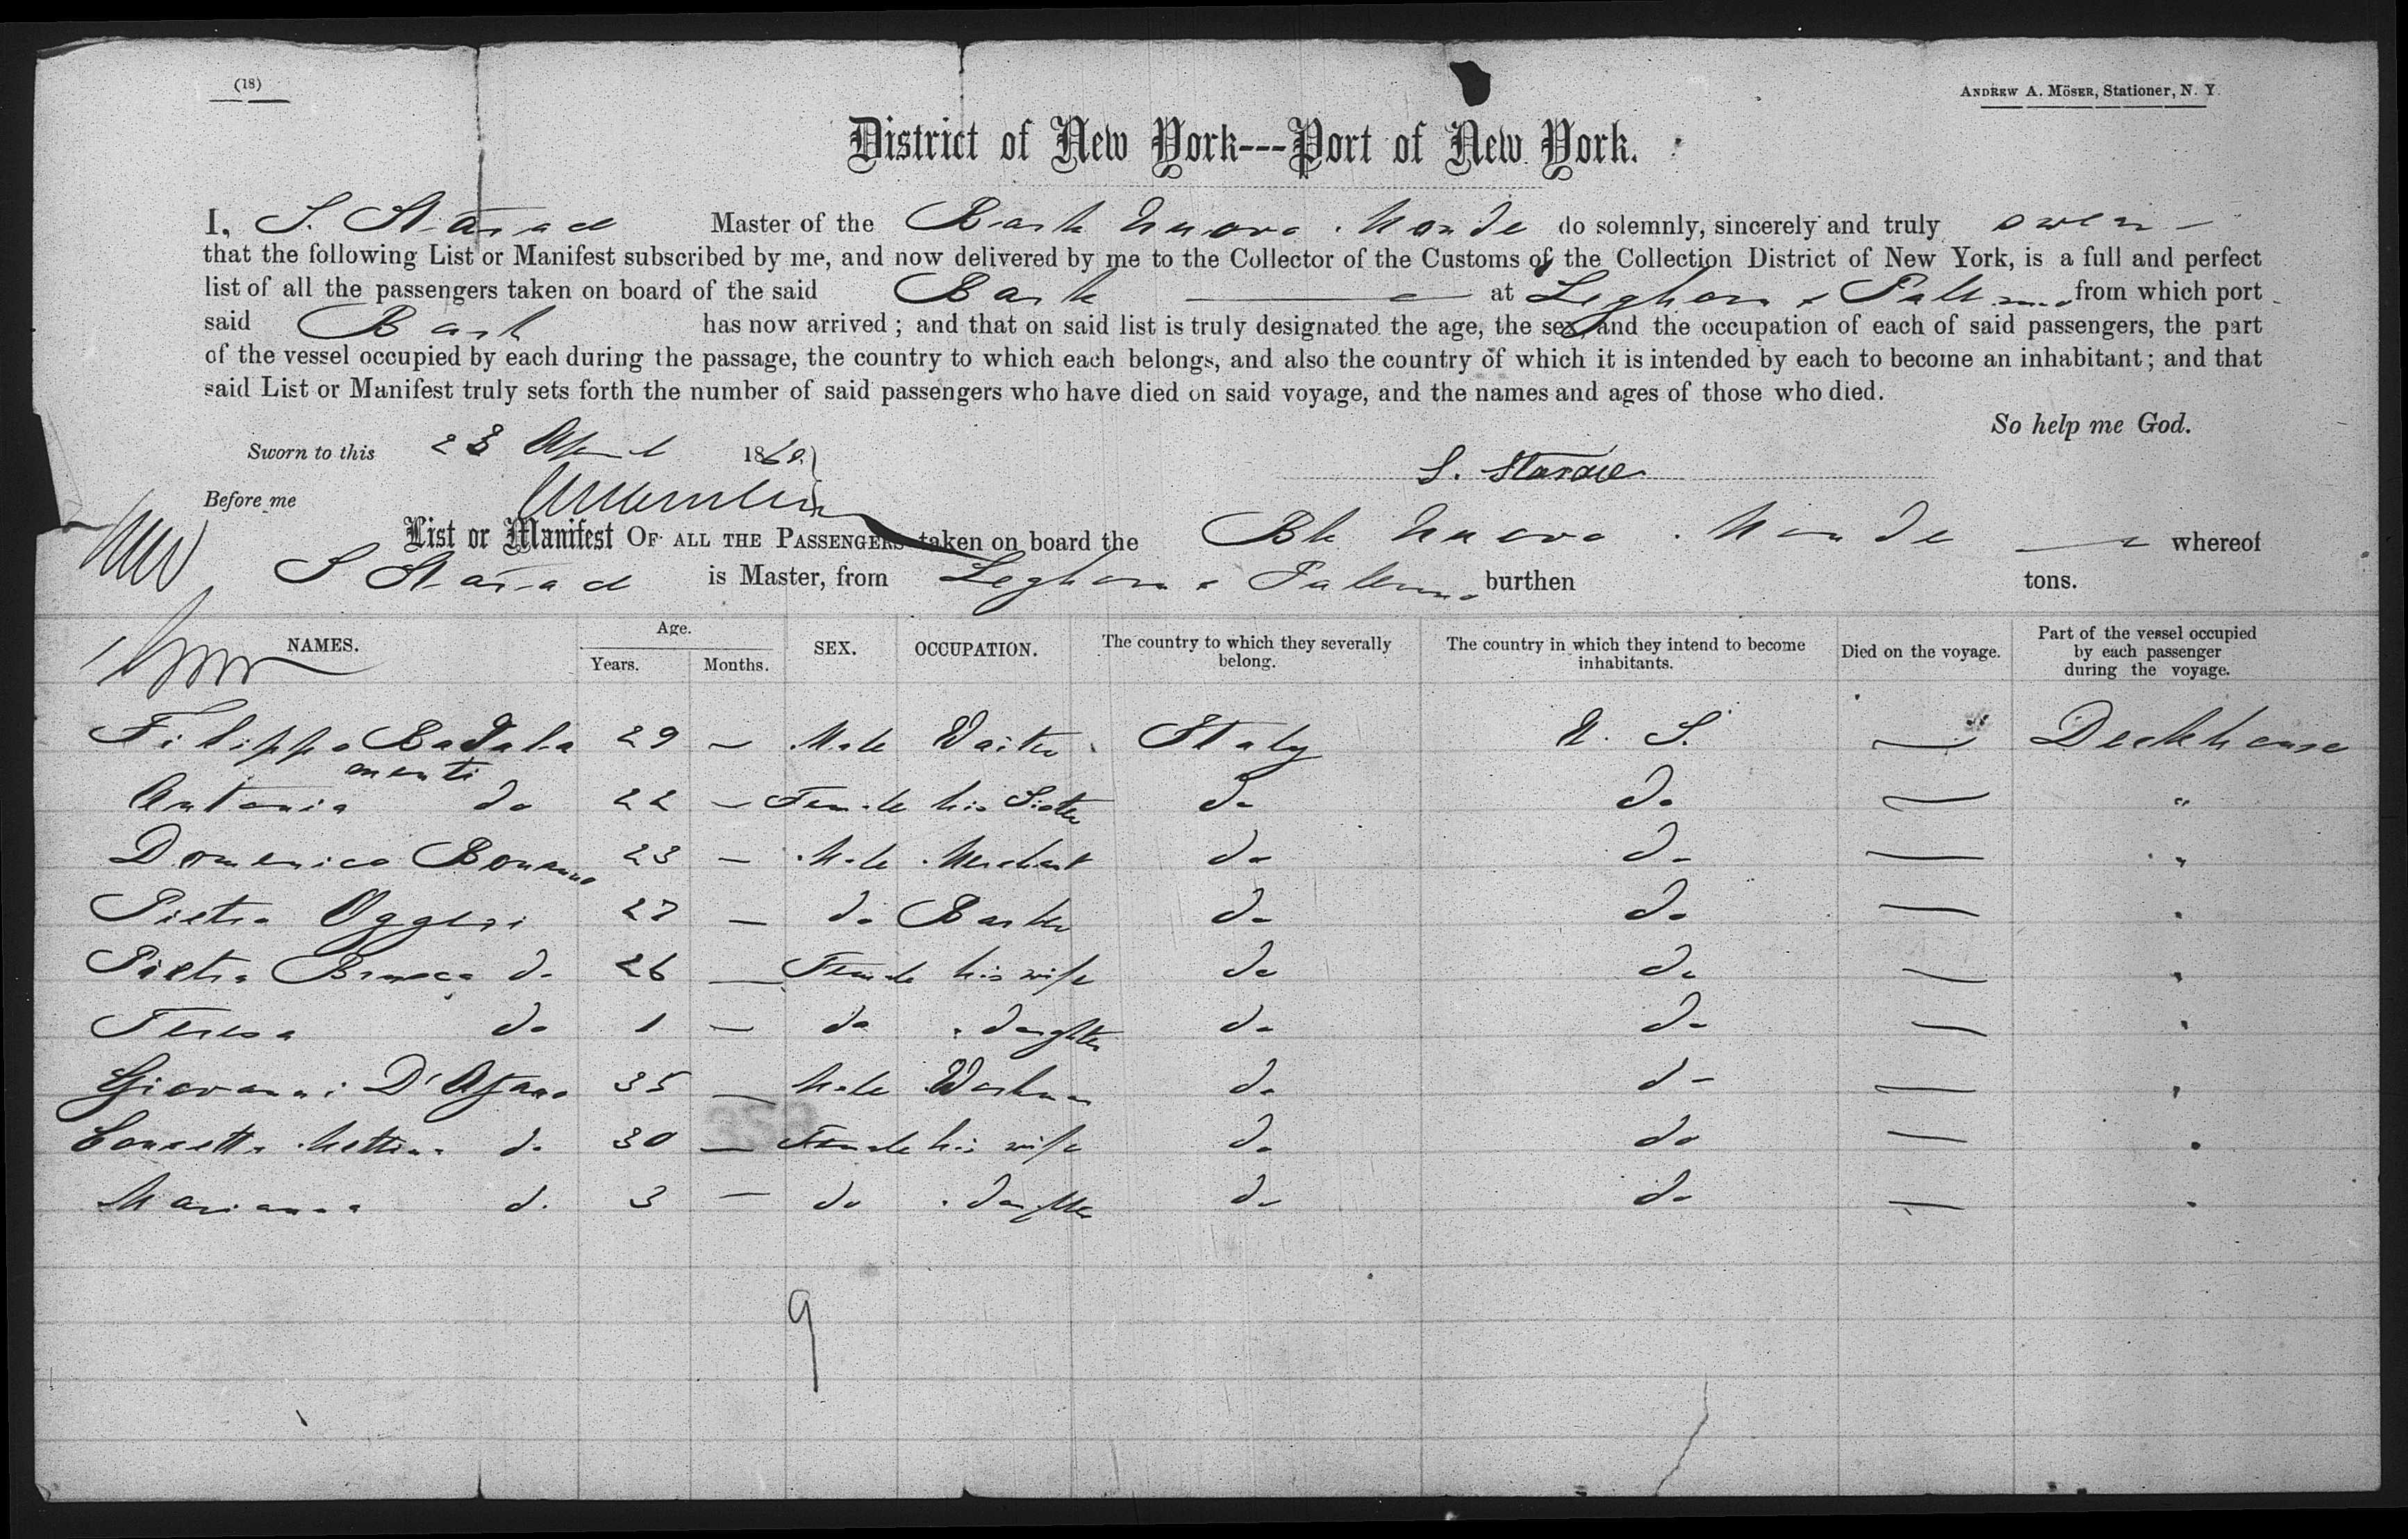 (18)
ANDREW A. MÖSER, Stationer, N. Y.
District of New York---Port of New York.
I, S. Master of the Bark Nuova Monde do solemnly, sincerely and truly swear
that the following List or Manifest subscribed by me, and now delivered by me to the Collector of the Customs of the Collection District of New York, is a full and perfect
list of all the passengers taken on board of the said Bark at Leghorn & Palermo from which port
said Bark has now arrived; and that on said list is truly designated the age, the sex and the occupation of each of said passengers, the part
of the vessel occupied by each during the passage, the country to which each belongs, and also the country of which it is intended by each to become an inhabitant; and that
said List or Manifest truly sets forth the number of said passengers who have died on said voyage, and the names and ages of those who died.
So help me God.
Sworn to this 23 April 1869
S.
Before me
List or Manifest OF ALL THE PASSENGERS taken on board the Bk Nuova Monde whereof
S is Master, from Leghorn & Palermo burthen tons.
NAMES. Age. Years. Months. SEX. OCCUPATION. The country to which they severally belong. The country in which they intend to become inhabitants. Died on the voyage. Part of the vessel occupied by each passenger during the voyage.
Filippo Badala 29 — Male Waiter Italy U. S. — Deckhouse
menti
Antonia do 22 — Female his Sister do do — "
Domenico Bonanno 23 — Male Merchant do do — "
Pietro Oggeri 27 — do Barber do do — "
Pietra do 26 — Female his wife do do — "
Teresa do 1 — do " daughter do do — "
Giovanni 35 — Male Workman do do — "
Concetta do 30 — Female his wife do do — "
Marianna do 3 — do " daughter do do — "
9